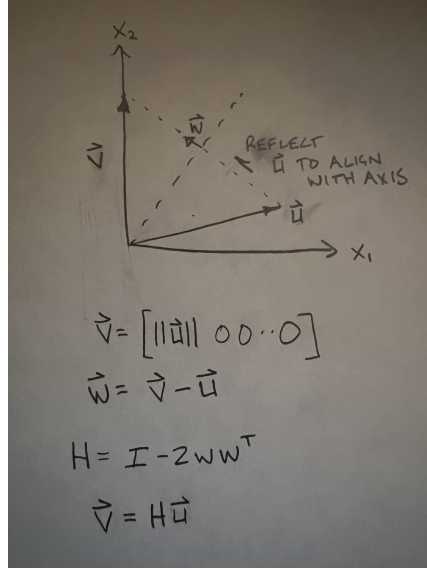 X₂
V⃗
w⃗
REFLECT
u⃗ TO ALIGN
WITH AXIS
u⃗
X₁
V⃗ = [||u⃗|| 0 0 ·· 0]
w⃗ = V⃗ - u⃗
H = I - 2ww^T
V⃗ = Hu⃗